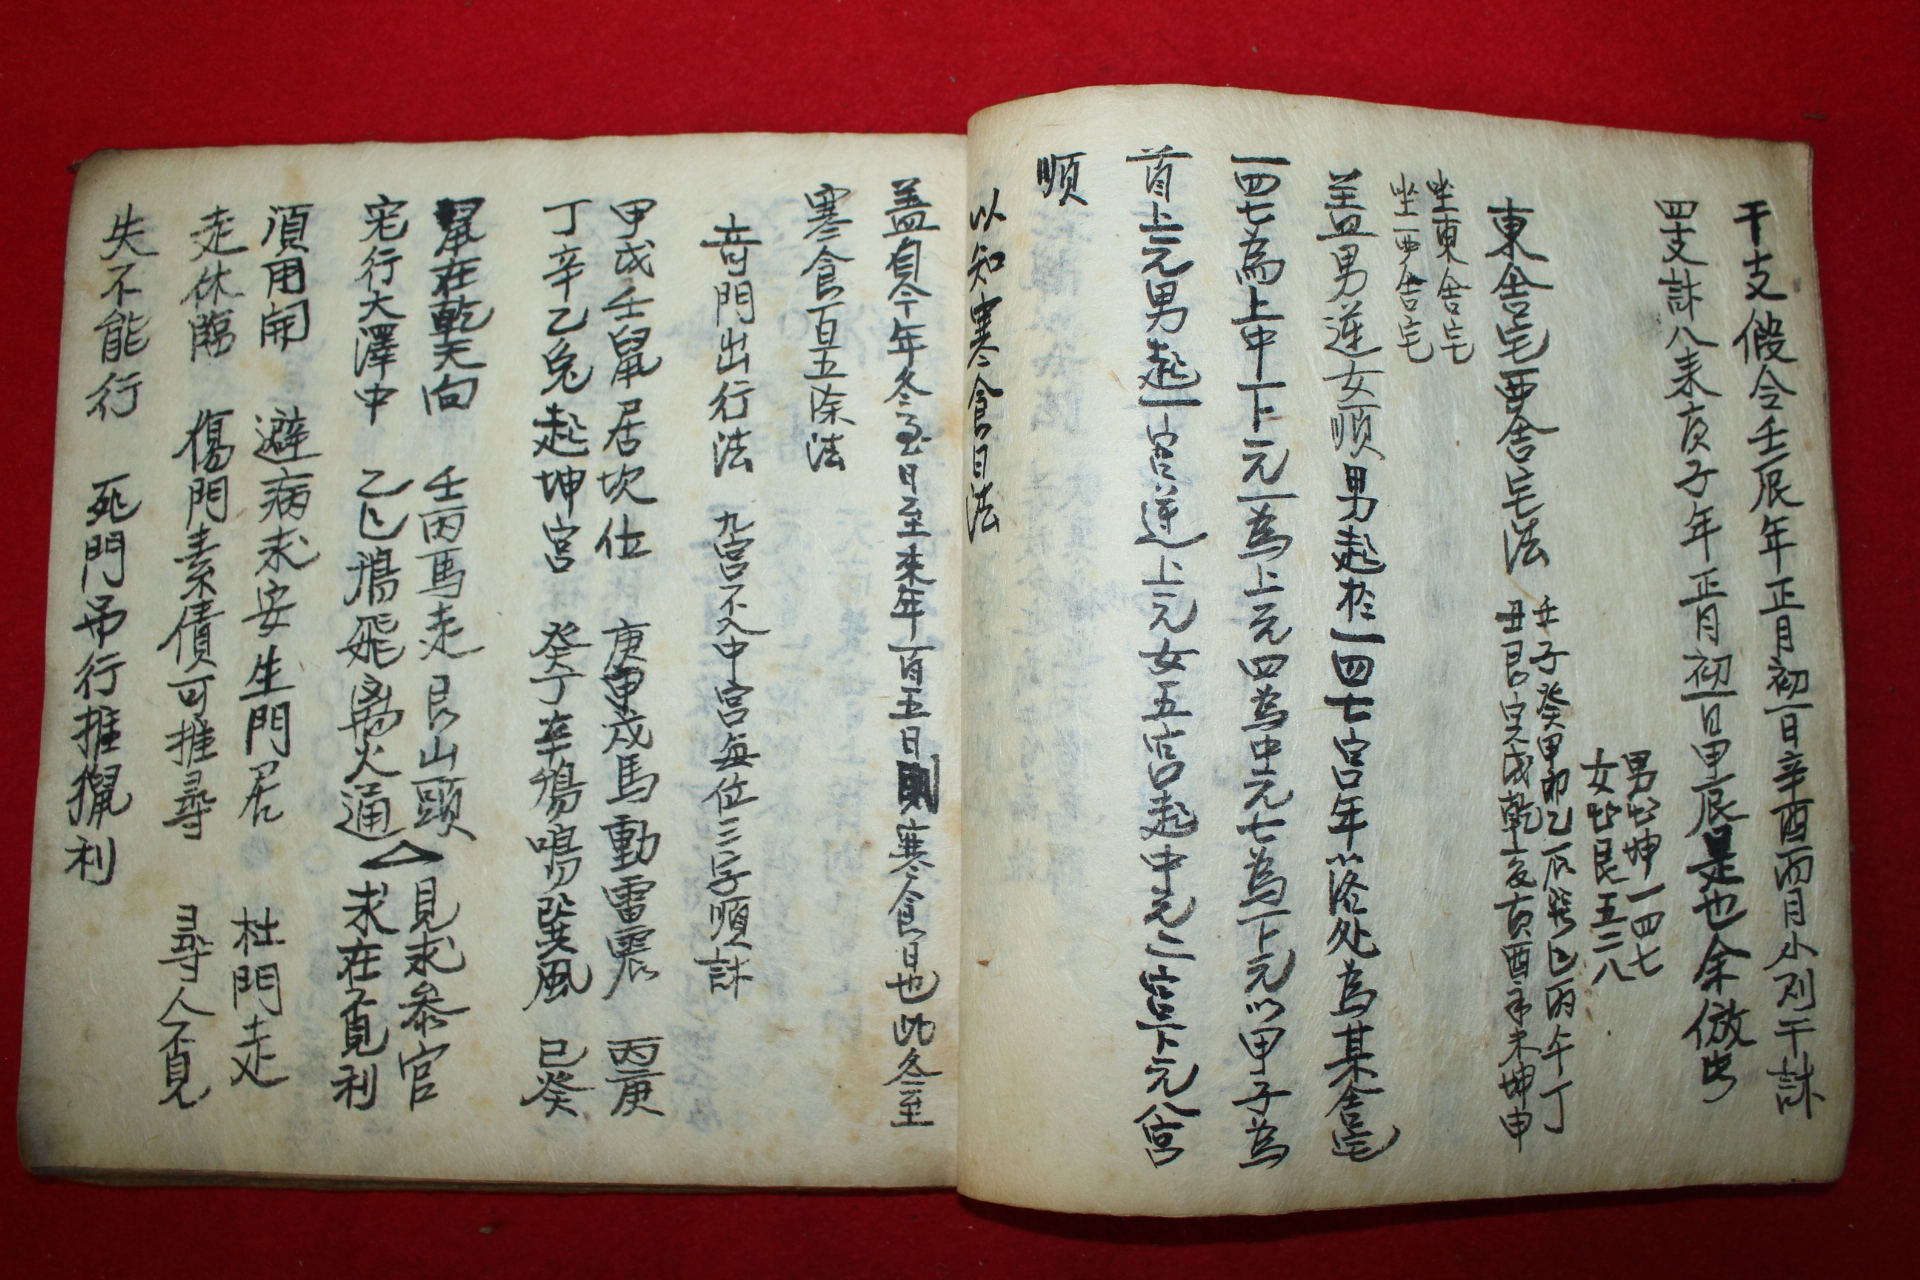 干支假令壬辰年正月初一日辛酉而月小則干計
四支計八來亥子年正月初一日甲辰是也余倣此
男 坤一四七
女 艮五二八
東舍宅西舍宅法
壬子癸甲卯乙辰巽巳丙午丁
丑艮寅戌乾亥酉辛未坤申
坐東舍宅
坐西舍宅
盖男逆女順男起於一四七宮年以落処為某舍宅
一四七為上中下元一為上元四為中元七為下元以甲子為
首上元男起一宮逆上元女五宮起中元二宮下元八宮
順
以知寒食日法
盖自今年冬至日至來年一百五日則寒食日也此冬至
寒食百五除法
奇門出行法 九宮不入中宮每位三字順計
甲戊壬鼠居坎位 庚甲戊馬動雷震 丙庚
丁辛乙兎起坤宮 癸丁辛鴉鳴巽風 己癸
鼠在乾天向 壬丙馬走艮山頭 見求參官
宅行大澤中 乙己鴉飛离火通 求在不覓利
須用開 避病求安生門居 杜門走
走休臨 傷門素債可推尋 尋人不覓
失不能行 死門吊行推獵利